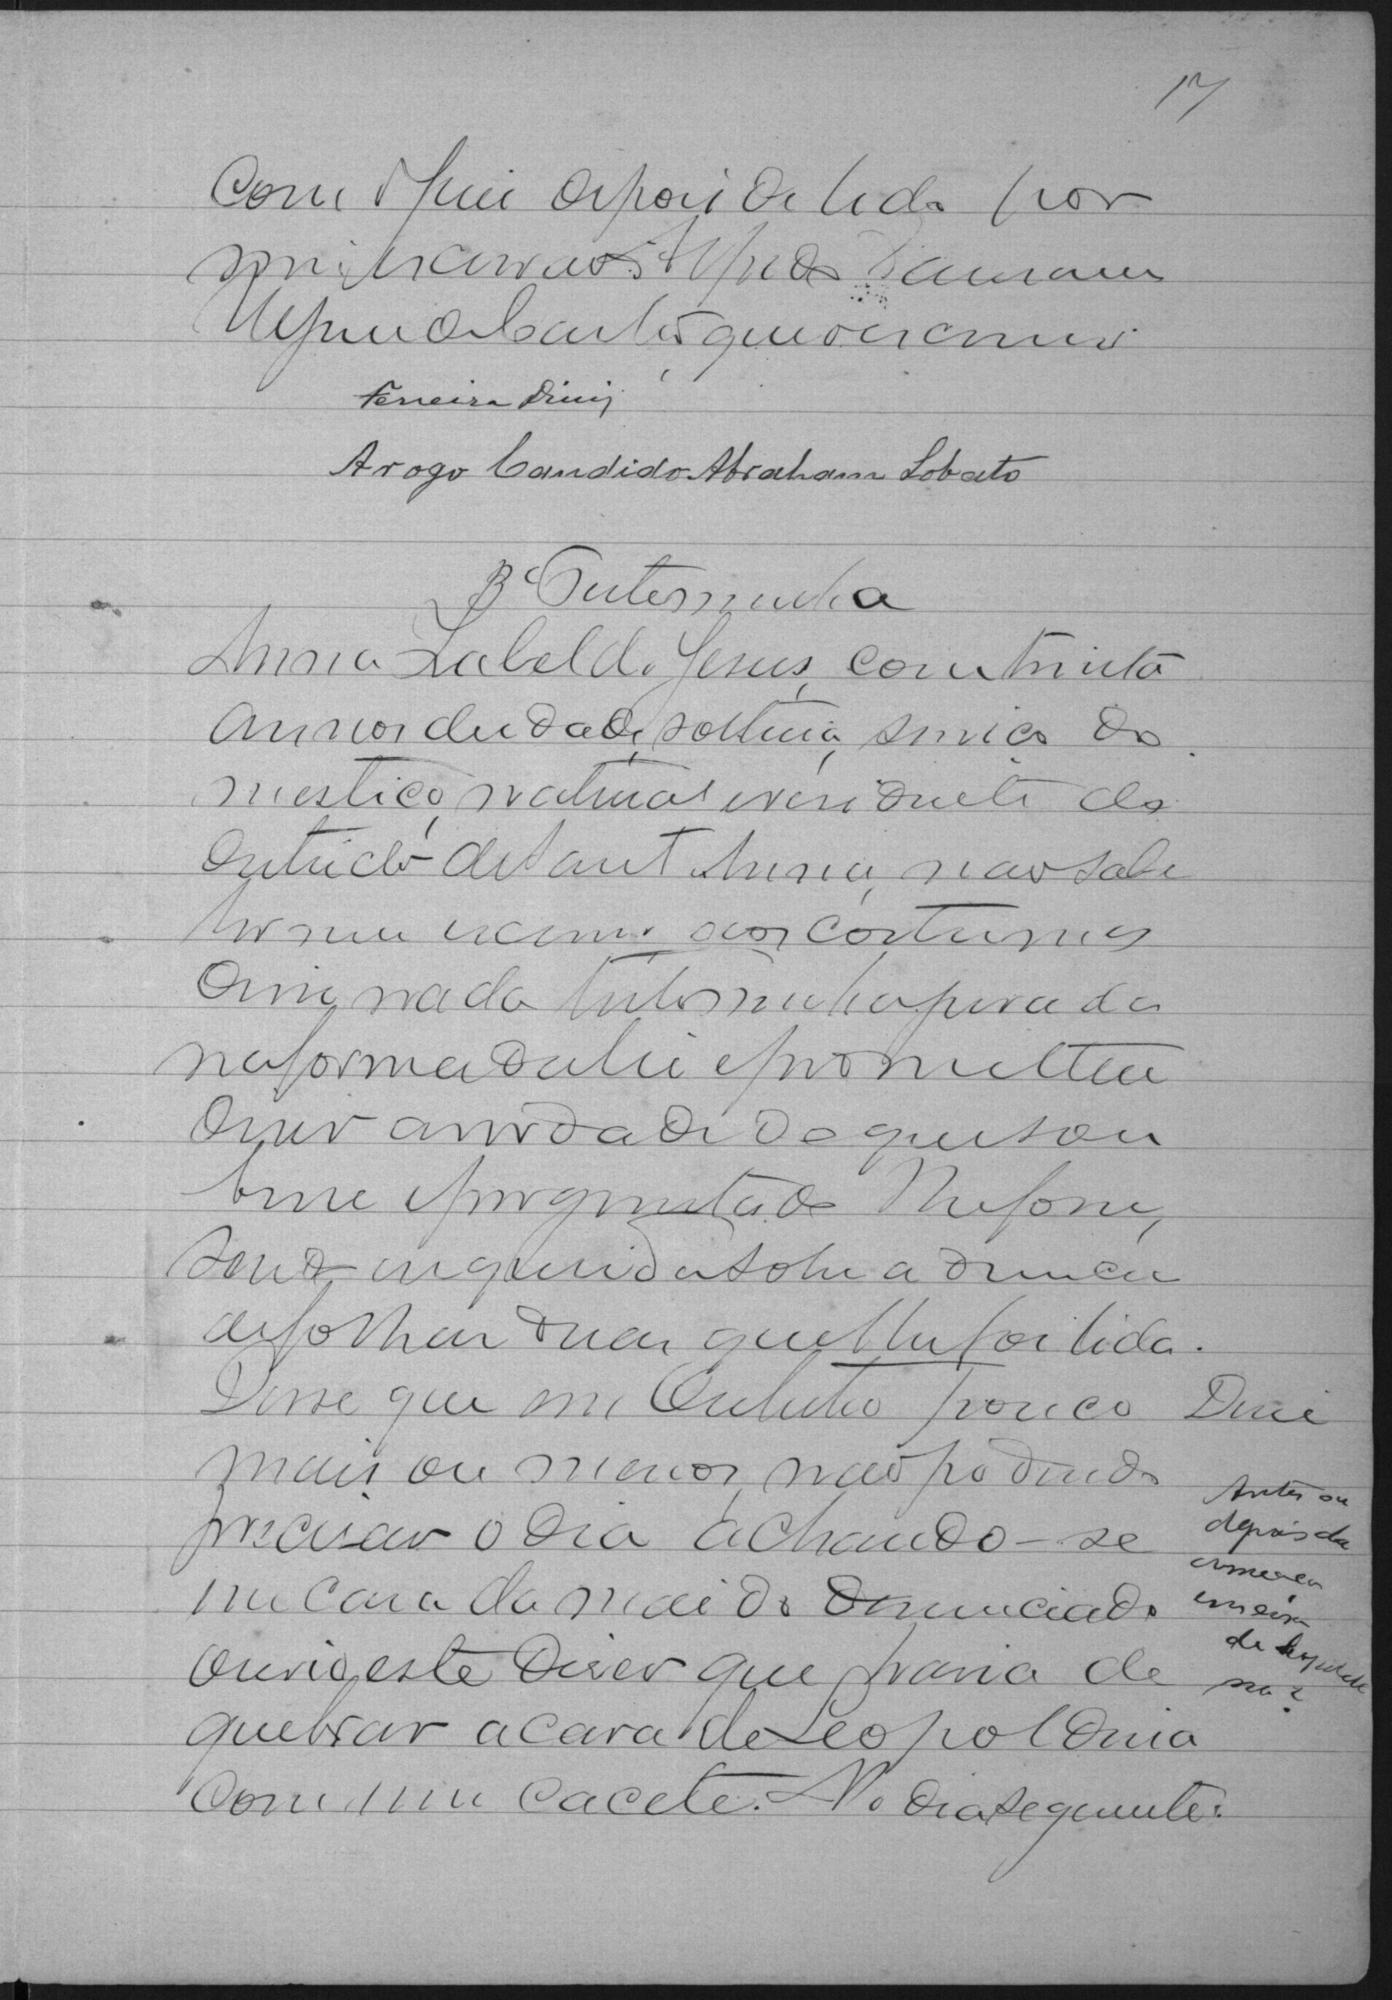 17
Com o Juiz depois de lida por
mim escrivão Alfredo
que o escrevi
Ferreira Diniz
Arogo Candido Abraham Lobato
3ª Testemunha
Anna Isabel de Jesus, com trinta
annos de idade, solteira, serviço do
mestico, natural e residente do
districto de Sant Anna, não sabe
ler nem escrever aos costumes
disse nada testemunha jurada
na forma da lei e prometteu
dizer a verdade do que sou
besse e perguntado lhe fosse,
sendo inquirida sobre a denuncia
de folhas duas que lhe foi lida.
Disse que em Outubro pouco
mais ou menos, não podendo
precisar o dia achando-se
em casa da mãe do denunciado
ouvio este dizer que havia de
quebrar a cara de Leopoldina
com um cacete. No dia seguinte
Dice
Antes ou
depois da
de Leopoldi
na?